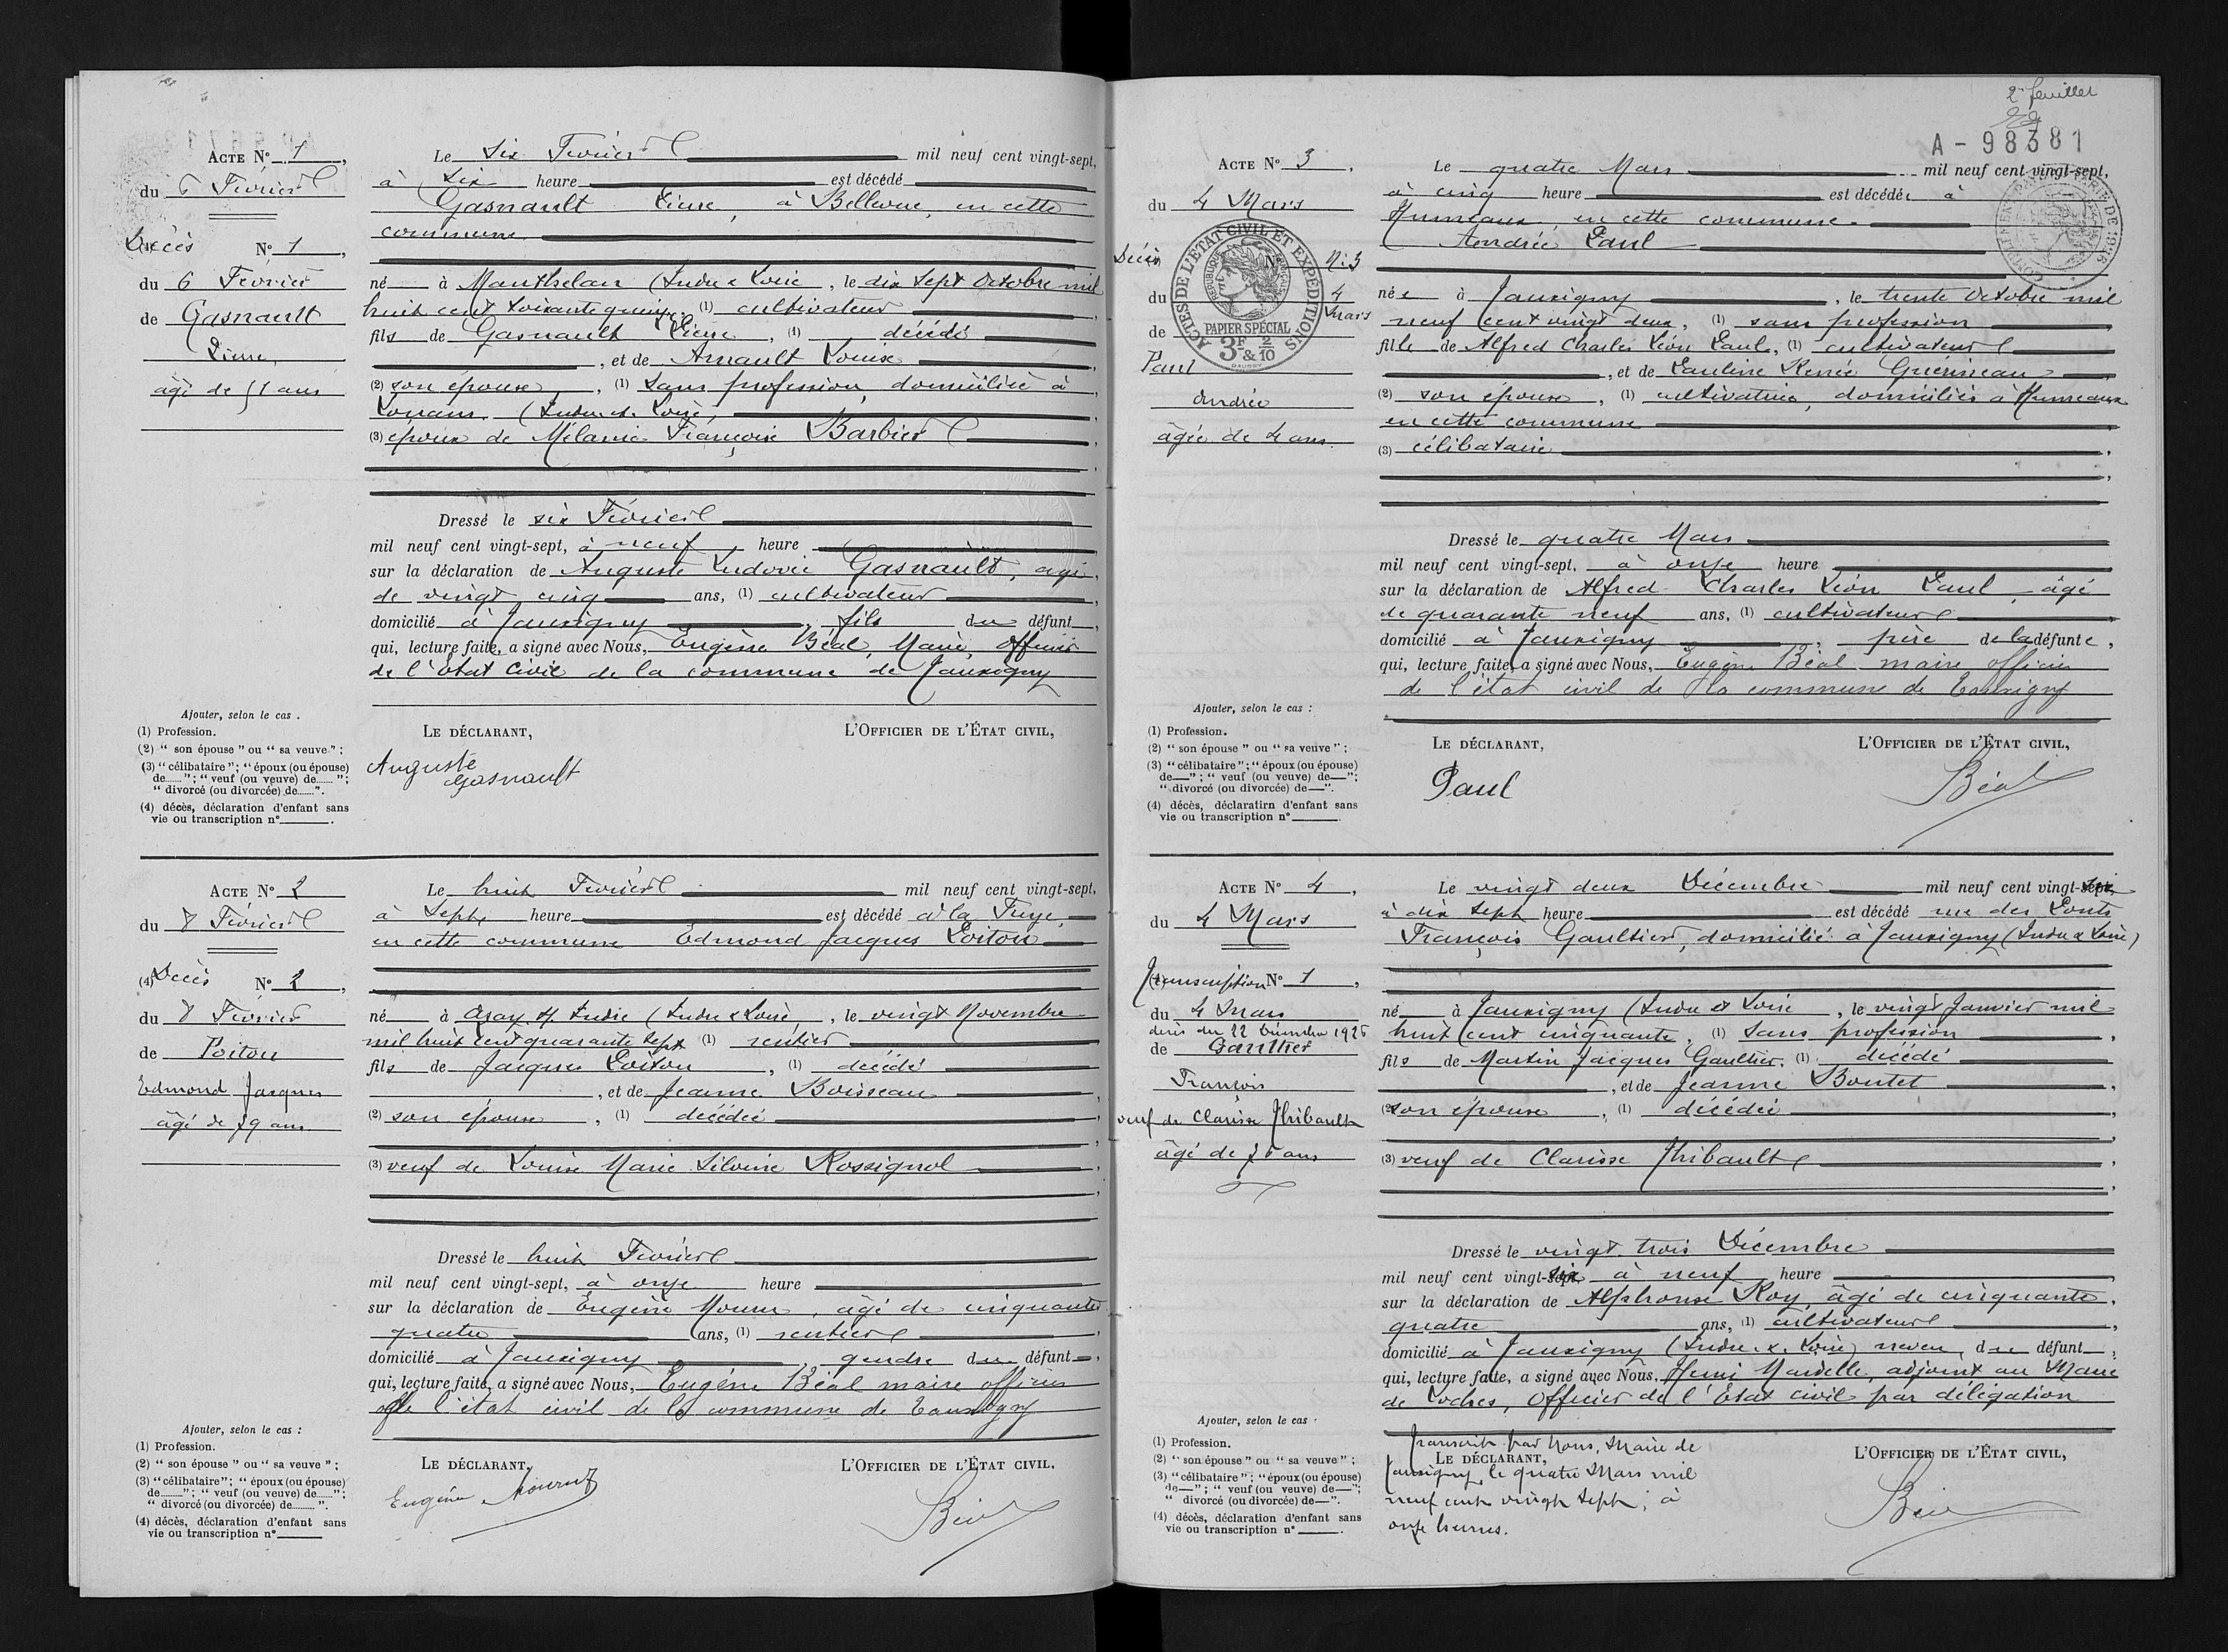 ACTE N° 1,
du 6 Février
Décès N° 1,
du 6 Février
de Gasnault
Pierre,
âgé de 51 ans
Le six Février mil neuf cent vingt-sept,
à six heure est décédé
Gasnault Pierre, à Bellevue, en cette
commune
né à Manthelan (Indre & Loire, le dix sept Octobre mil
huit cent soixante quinze, (1) cultivateur
fils de Gasnault Pierre, (1) décédé
, et de Arnault Louise
(2) son épouse, (1) sans profession, domiciliée à
Louans (Indre et Loire,
(3) époux de Mélanie Françoise Barbier
Dressé le six Février
mil neuf cent vingt-sept, à neuf heure
sur la déclaration de Auguste Ludovic Gasnault, âgé
de vingt cinq ans, (1) cultivateur
domicilié à Tauxigny, fils du défunt,
qui, lecture faite, a signé avec Nous, Eugène Béal, Maire, Officier
de l'Etat Civil de la commune de Tauxigny
Ajouter, selon le cas.
(1) Profession.
(2) "son épouse" ou "sa veuve";
(3) "célibataire"; "époux (ou épouse)
de......"; "veuf (ou veuve) de......";
"divorcé (ou divorcée) de......".
(4) décès, déclaration d'enfant sans
vie ou transcription n°.
LE DÉCLARANT,
L'OFFICIER DE L'ÉTAT CIVIL,
Auguste
Gasnault
ACTE N° 2
du 8 Février
(4) Décès N° 2,
du 8 Février
de Poitou
Edmond Jacques
âgé de 79 ans
Le huit Février mil neuf cent vingt-sept,
à sept heure est décédé à la Tuye,
en cette commune Edmond Jacques Poitou
né à Azay s/ Indre (Indre & Loire, le vingt Novembre
mil huit cent quarante sept (1) rentier
fils de Jacques Poitou, (1) décédé
, et de Jeanne Boisseau
(2) son épouse, (1) décédée
(3) veuf de Louise Marie Silvine Rossignol
Dressé le huit Février
mil neuf cent vingt-sept, à onze heure
sur la déclaration de Eugène, âgé de cinquante
quatre ans, (1) rentier
domicilié à Tauxigny, gendre du défunt,
qui, lecture faite, a signé avec Nous, Eugène Béal maire officier
de l'état civil de la commune de Tauxigny
Ajouter, selon le cas :
(1) Profession.
(2) "son épouse" ou "sa veuve";
(3) "célibataire"; "époux (ou épouse)
de......"; "veuf (ou veuve) de......";
"divorcé (ou divorcée) de......".
(4) décès, déclaration d'enfant sans
vie ou transcription n°
LE DÉCLARANT,
L'OFFICIER DE L'ÉTAT CIVIL.
Eugène
Béal
2e feuillet
A - 98381
ACTE N° 3,
du 4 Mars
Décès N° N:3
du 4 Mars
de
Paul
Andrée
âgée de 4 ans
ACTES DE L'ÉTAT CIVIL ET EXPÉDITIONS
RÉPUBLIQUE FRANÇAISE
PAPIER SPÉCIAL
3F & 2/10
DAUSSY
Le quatre Mars mil neuf cent vingt-sept,
à cinq heure est décédée à
Humeaux, en cette commune.
Andrée Paul
née à Tauxigny, le trente Octobre mil
neuf cent vingt deux, (1) sans profession
fille de Alfred Charles Léon Paul, (1) cultivateur
, et de Pauline Renée Guérineau
(2) son épouse, (1) cultivatrice, domiciliés à Humeaux
en cette commune
(3) célibataire
Dressé le quatre Mars
mil neuf cent vingt-sept, à onze heure
sur la déclaration de Alfred Charles Léon Paul, âgé
de quarante neuf ans, (1) cultivateur
domicilié à Tauxigny, père de la défunte,
qui, lecture faite, a signé avec Nous, Eugène Béal maire officier
de l'état civil de la commune de Tauxigny
Ajouter, selon le cas :
(1) Profession.
(2) "son épouse" ou "sa veuve";
(3) "célibataire"; "époux (ou épouse)
de—"; "veuf (ou veuve) de—";
"divorcé (ou divorcée) de—".
(4) décès, déclaratirn d'enfant sans
vie ou transcription n°
LE DÉCLARANT,
L'OFFICIER DE L'ÉTAT CIVIL,
Paul
Béal
ACTE N° 4,
du 4 Mars
Transcription N° 1,
du 4 Mars
décès du 22 Décembre 1926
de Gaultier
François
veuf de Clarisse Thibault
âgé de 76 ans
Le vingt deux Décembre mil neuf cent vingt-six
à dix sept heure est décédé rue des Ponts
François Gaultier, domicilié à Tauxigny (Indre & Loire)
né à Tauxigny (Indre et Loire, le vingt Janvier mil
huit cent cinquante, (1) sans profession
fils de Martin Jacques Gaultier, (1) décédé
, et de Jeanne Boutet
(2) son épouse, (1) décédée
(3) veuf de Clarisse Thibault
Dressé le vingt trois Décembre
mil neuf cent vingt-six à neuf heure
sur la déclaration de Alphonse Roy, âgé de cinquante
quatre ans, (1) cultivateur
domicilié à Tauxigny (Indre & Loire) neveu du défunt,
qui, lecture faite, a signé avec Nous, Henri Mardelle, adjoint au Maire
de Loches, Officier de l'Etat civil par délégation
Ajouter, selon le cas :
(1) Profession.
(2) "son épouse" ou "sa veuve";
(3) "célibataire"; "époux (ou épouse)
de—"; "veuf (ou veuve) de—";
"divorcé (ou divorcée) de—".
(4) décès, déclaration d'enfant sans
vie ou transcription n°
Transcrit par Nous, Maire de
LE DÉCLARANT,
Tauxigny, le quatre Mars mil
neuf cent vingt sept, à
onze heures.
L'OFFICIER DE L'ÉTAT CIVIL,
Béal